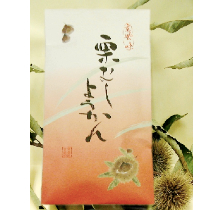 栗むし
ようかん